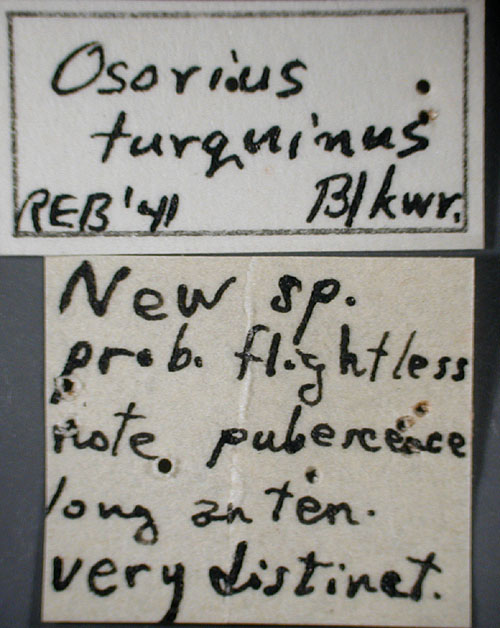 Osorius
turquinus
REB '41 Blkwr.
New sp.
prob. flightless
note pubescence
long anten.
very distinct.